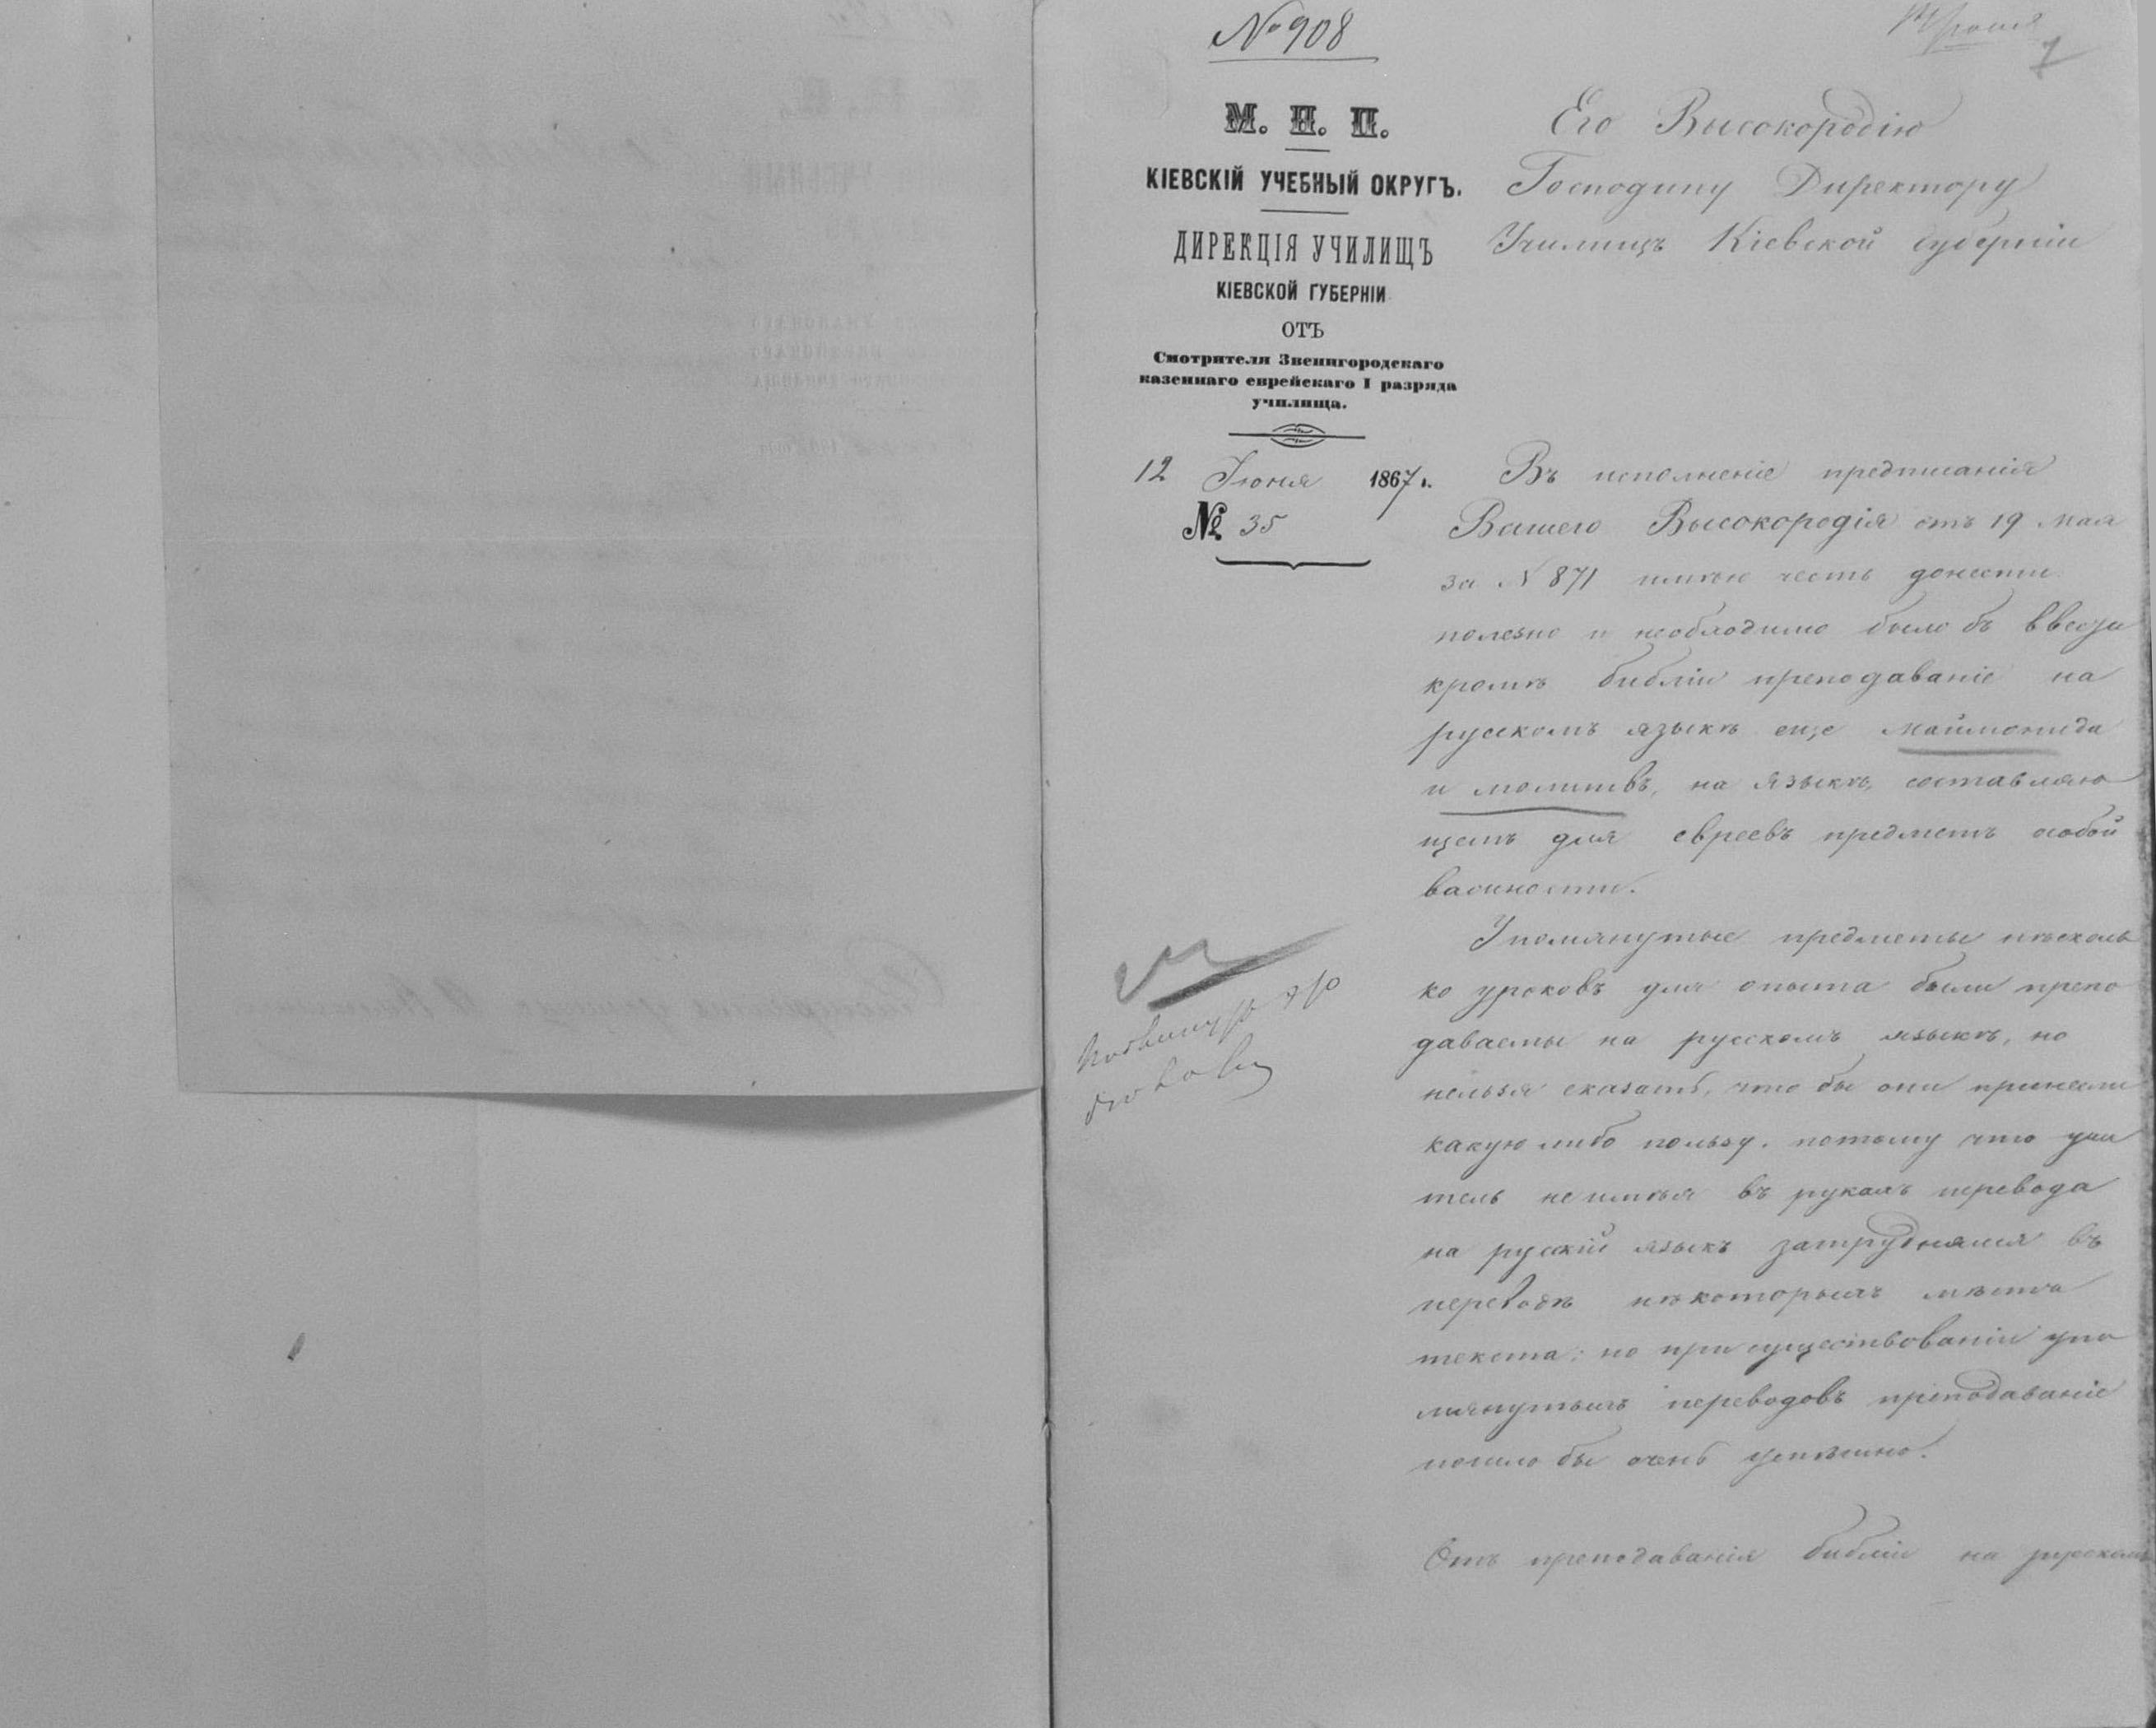 № 908
7
М. Н. П.
КІЕВСКІЙ УЧЕБНЫЙ ОКРУГЪ.
ДИРЕКЦІЯ УЧИЛИЩЪ
КІЕВСКОЙ ГУБЕРНІИ
ОТЪ
Смотрителя Звенигородскаго
казеннаго еврейскаго I разряда
училища.
12 Іюня 1867 г.
№ 35
Его Высокородію
Господину Директору
Училищъ Кіевской губерніи
Въ исполненіе предписанія
Вашего Высокородія отъ 19 Мая
за N 871 имѣю честь донести
полезно и необходимо было бъ ввези
кромѣ библіи преподаваніе на
русскомъ языкѣ еще Маймонида
и молитвъ, на языкѣ, составляю
щемъ для евреевъ предметъ особой
важности.
Упомянутые предметы нѣсколь
ко уроковъ для опыта были препо
даваемы на русскомъ языкѣ, но
нельзя сказать, что бы они принесли
какую либо пользу. потому что учи
тель не имѣя въ рукахъ перевода
на рускій языкъ затруднялся въ
переводѣ нѣкоторыхъ мѣстъ
текста; но при существованіи упо
мянутыхъ переводовъ преподаваніе
пошло бы очень успѣшно.
Отъ преподаванія библіи на русскомъ